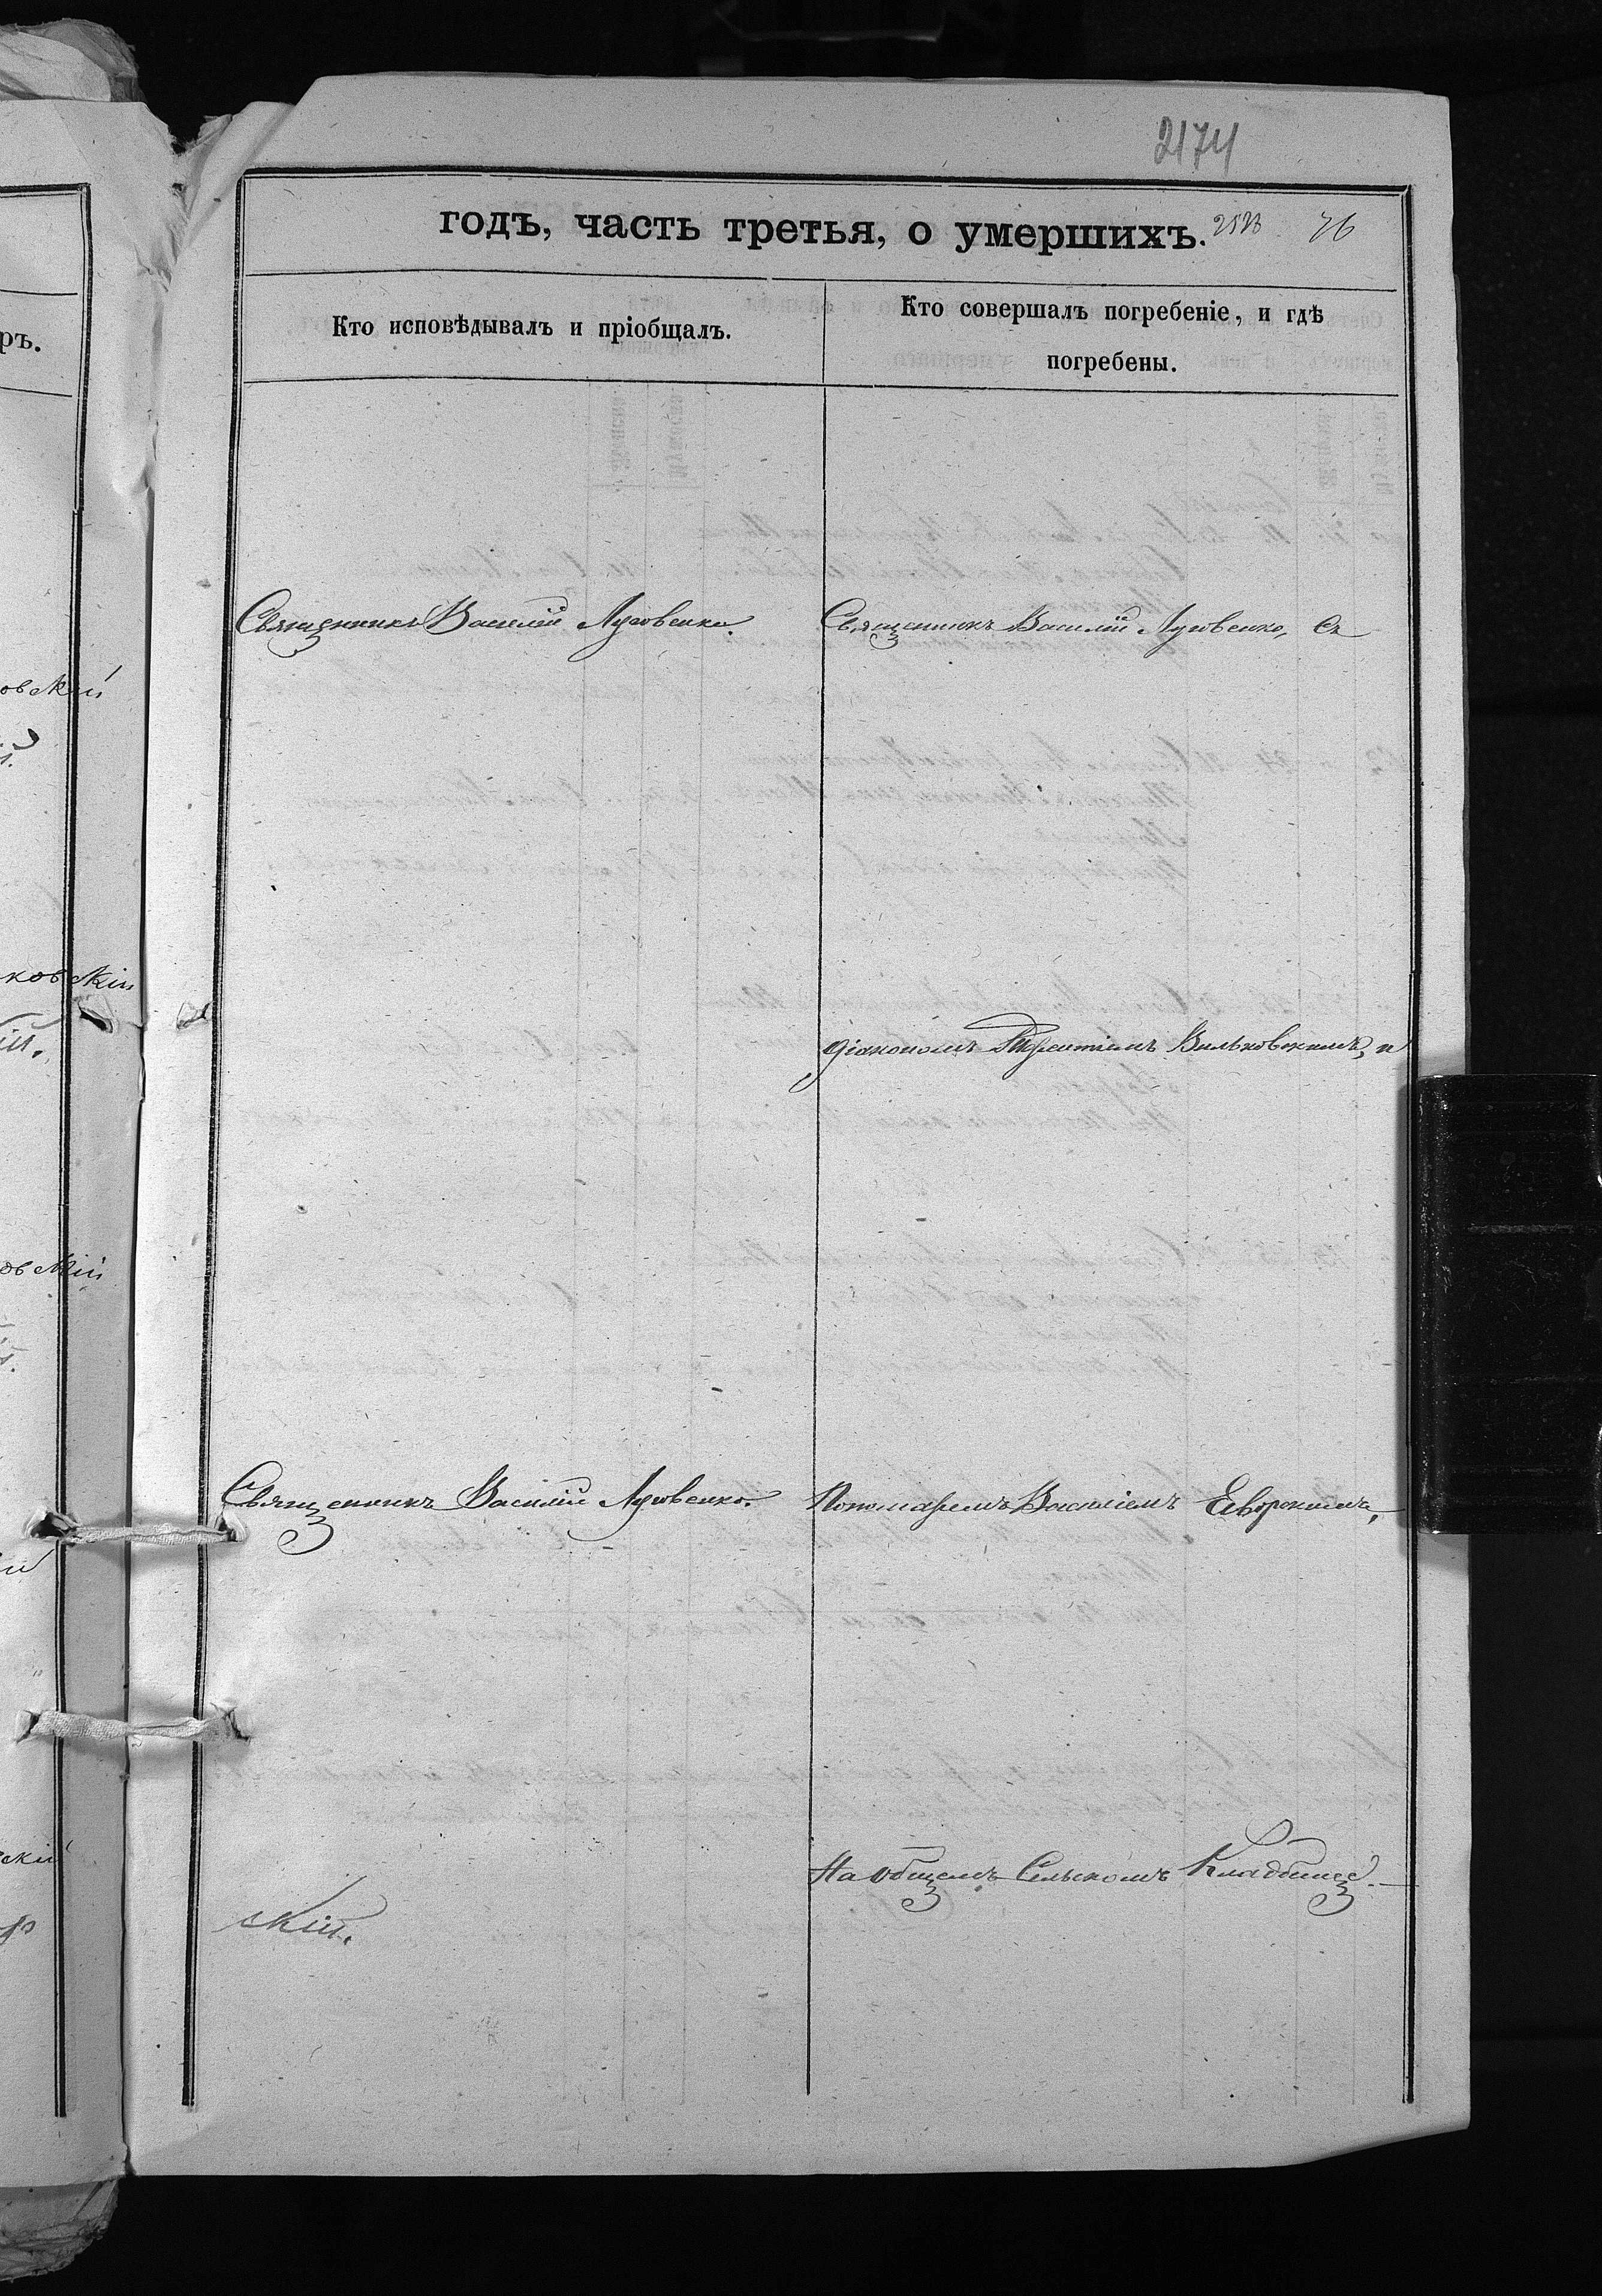 2174
годъ, часть третья, о умершихъ. 76
Кто исповѣдывалъ и пріобщалъ.
Кто совершалъ погребеніе, и гдѣ
погребены.
ръ.
Священникъ Василій Луговенко.
Священникъ Василій Луговенко, съ
овскій
ковскій
діакономъ Вильковскимъ, и
овскій
Священникъ Василій Луговенко.
Пономаремъ Василіемъ
скій
На общемъ Сельскомъ Кладбищѣ.
скій.